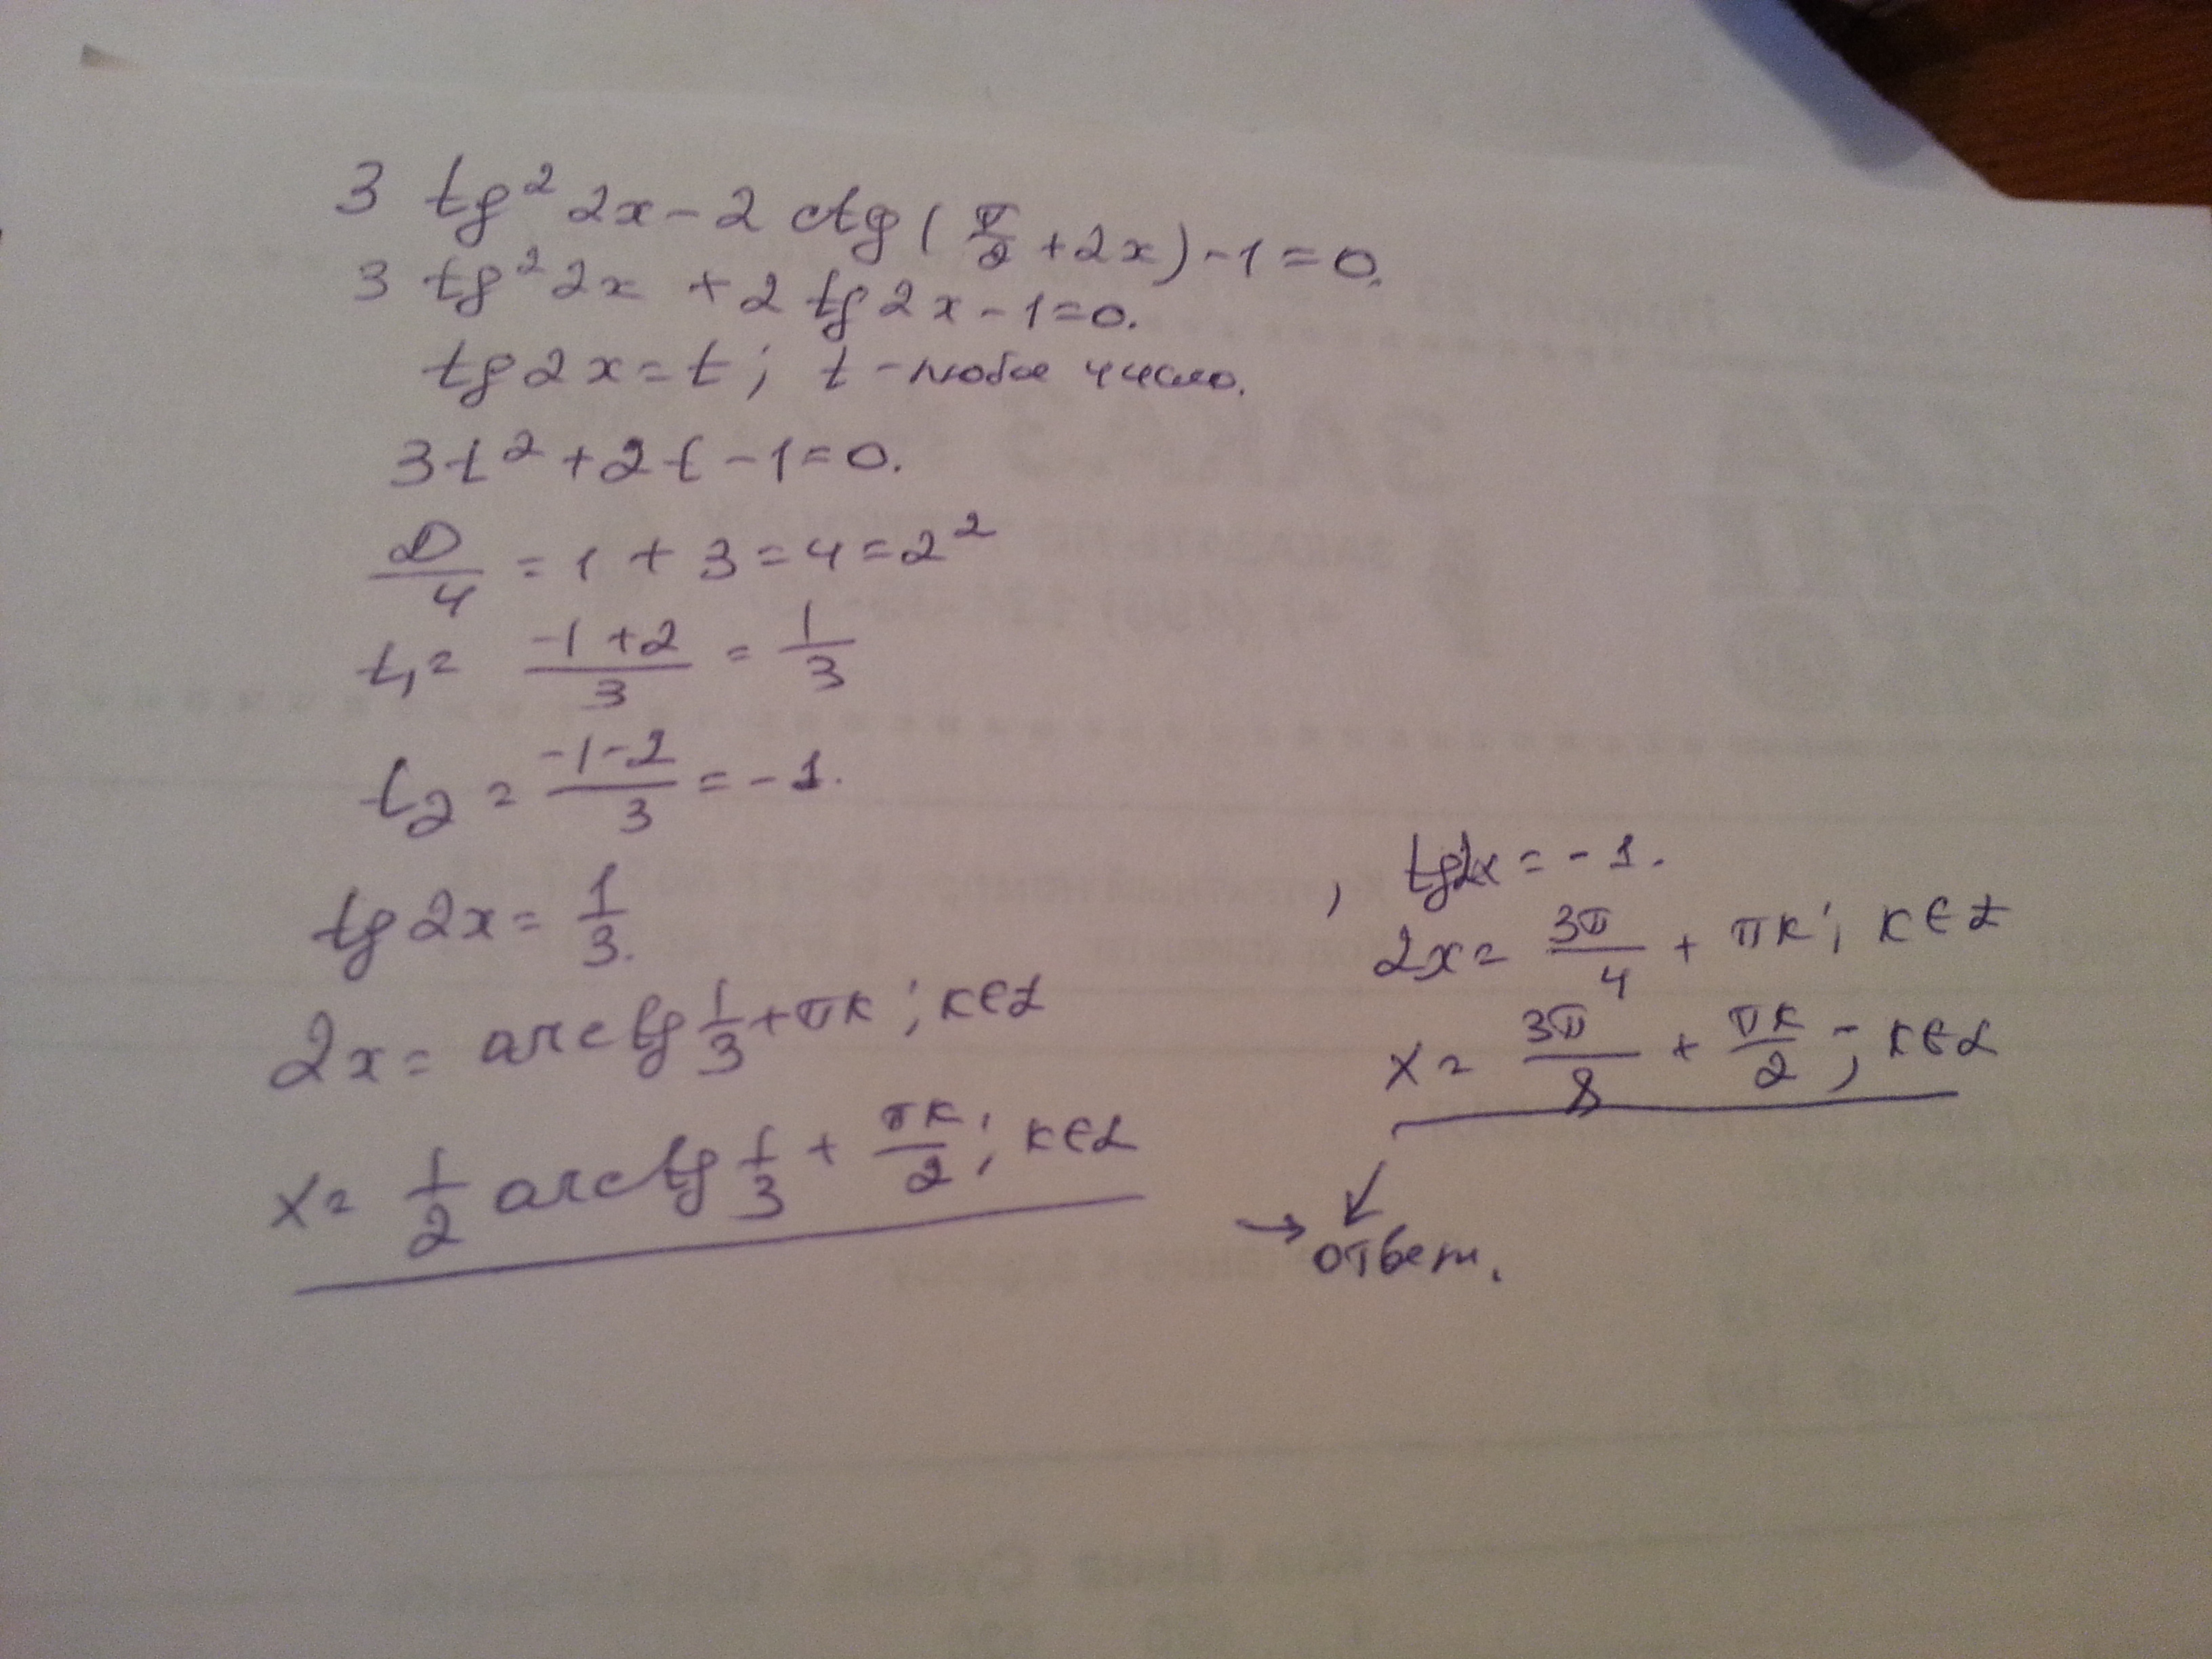 3 tg² 2x - 2 ctg(π/2 + 2x) - 1 = 0.
3 tg² 2x + 2 tg 2x - 1 = 0.
tg 2x = t; t - любое число.
3t² + 2t - 1 = 0.
D/4 = 1 + 3 = 4 = 2²
t₁ = (-1 + 2)/3 = 1/3
t₂ = (-1 - 2)/3 = -1.
tg 2x = 1/3.
2x = arctg 1/3 + πк; к∈Z
x = 1/2 arctg 1/3 + πк/2; к∈Z
, tg2x = -1.
2x = 3π/4 + πк; к∈Z
x = 3π/8 + πк/2; к∈Z
→ ответ.